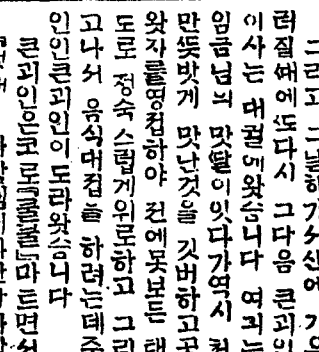 그리고 그날해가서산에 기우
러질ᄯᅢ에ᄯᅩ다시 그다음 큰괴인
이사는 대궐에왓슴니다 여긔는
임금님의 맛ᄯᅡᆯ이잇다가역시
만ᄯᅳᆺ밧게 맛난것을 깃버하고공
왓자를영접하야 전에못보든 태
도로 정숙스럽게위로하고 그리
고나서 음식대접을 하려는데주
인인큰괴인이도라왓슴니다
큰괴인은코로「쿨쿨」마트면서